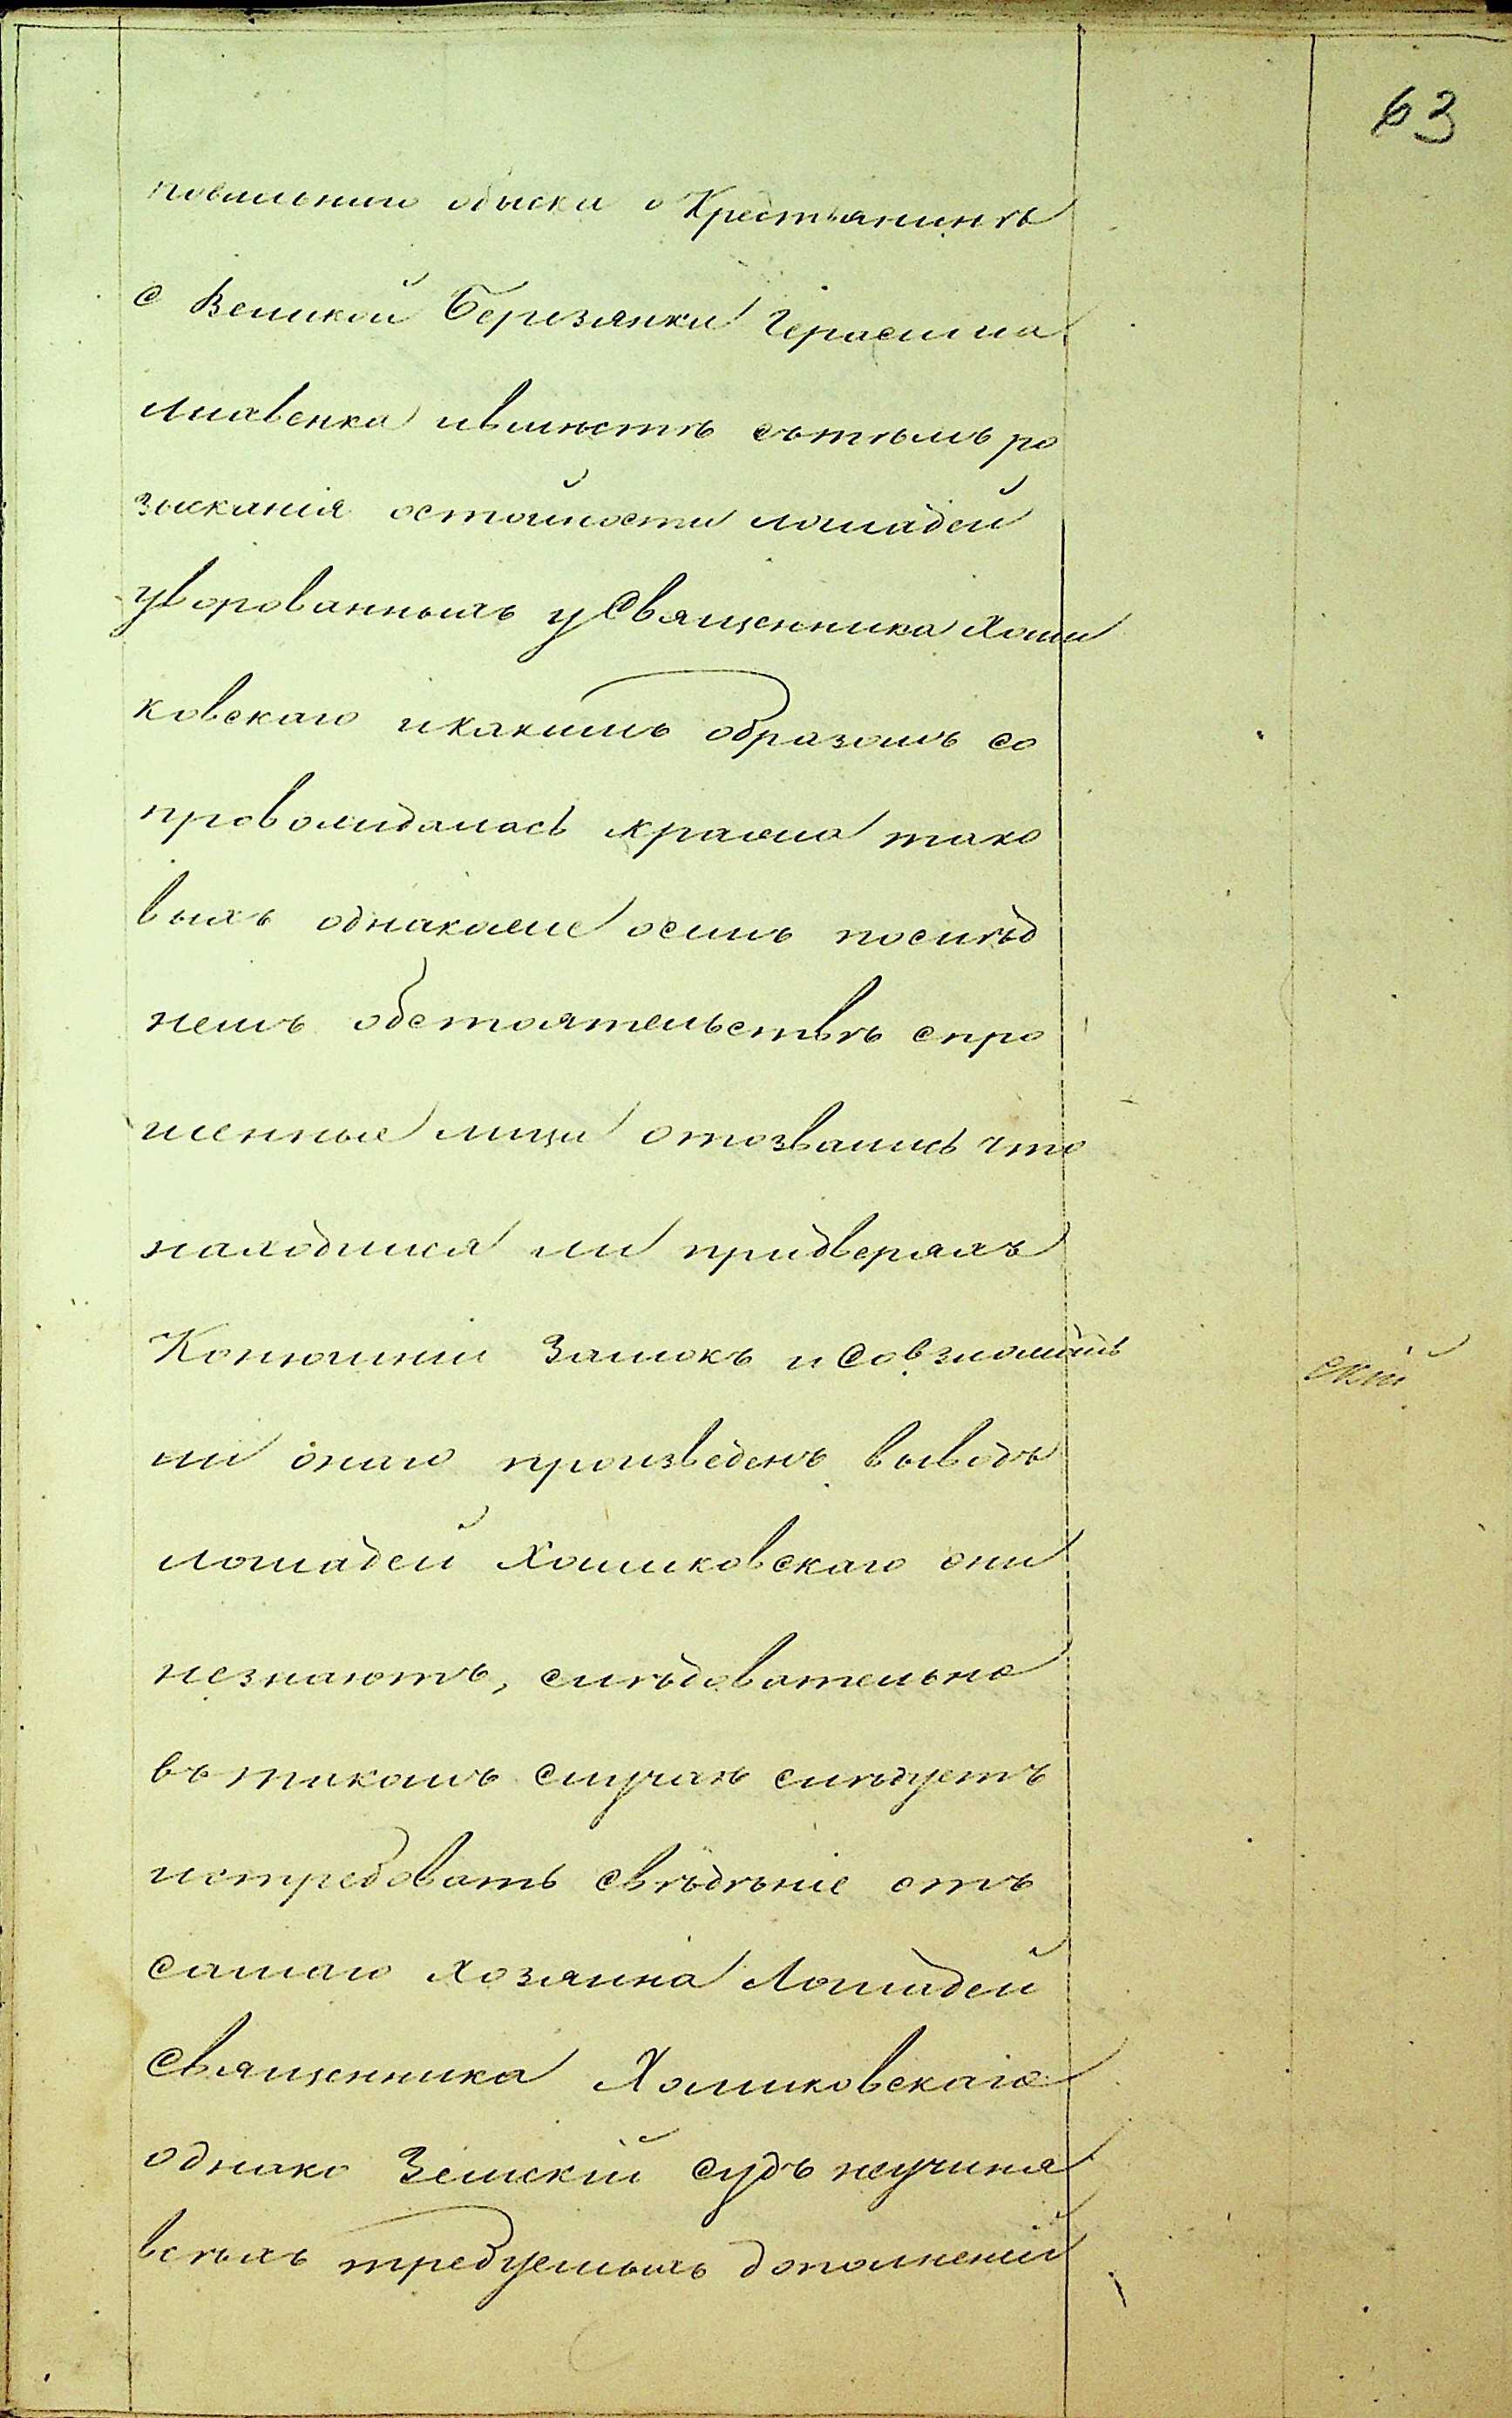 63
повальнии обыски о Крестьянинѣ
с Великой Березянки Герасима
Миавенка ивмѣстѣ сътѣмъ ро
зысканія остоимости лошадей
уворованныхъ уСвященника Хоми
ковскаго икакимъ образомъ со
провождалась кража тако
выхъ однакоже осемъ послѣд
немъ обстоятельствѣ спро
шенные лица отозвались что
находился ли придверяхъ
Конюшни Замокъ и Совзломомъ
ли онаго произведенъ выводъ
лошадей Хомиковскаго они
незнаютъ, слѣдовательно
въ такомъ случаѣ слѣдуетъ
истребовать свѣдѣніе отъ
самаго хозяина Лошадей
Священника Хомиковскаго
однако Земскій судъ неучиня
всѣхъ требуемыхъ дополненій
скій